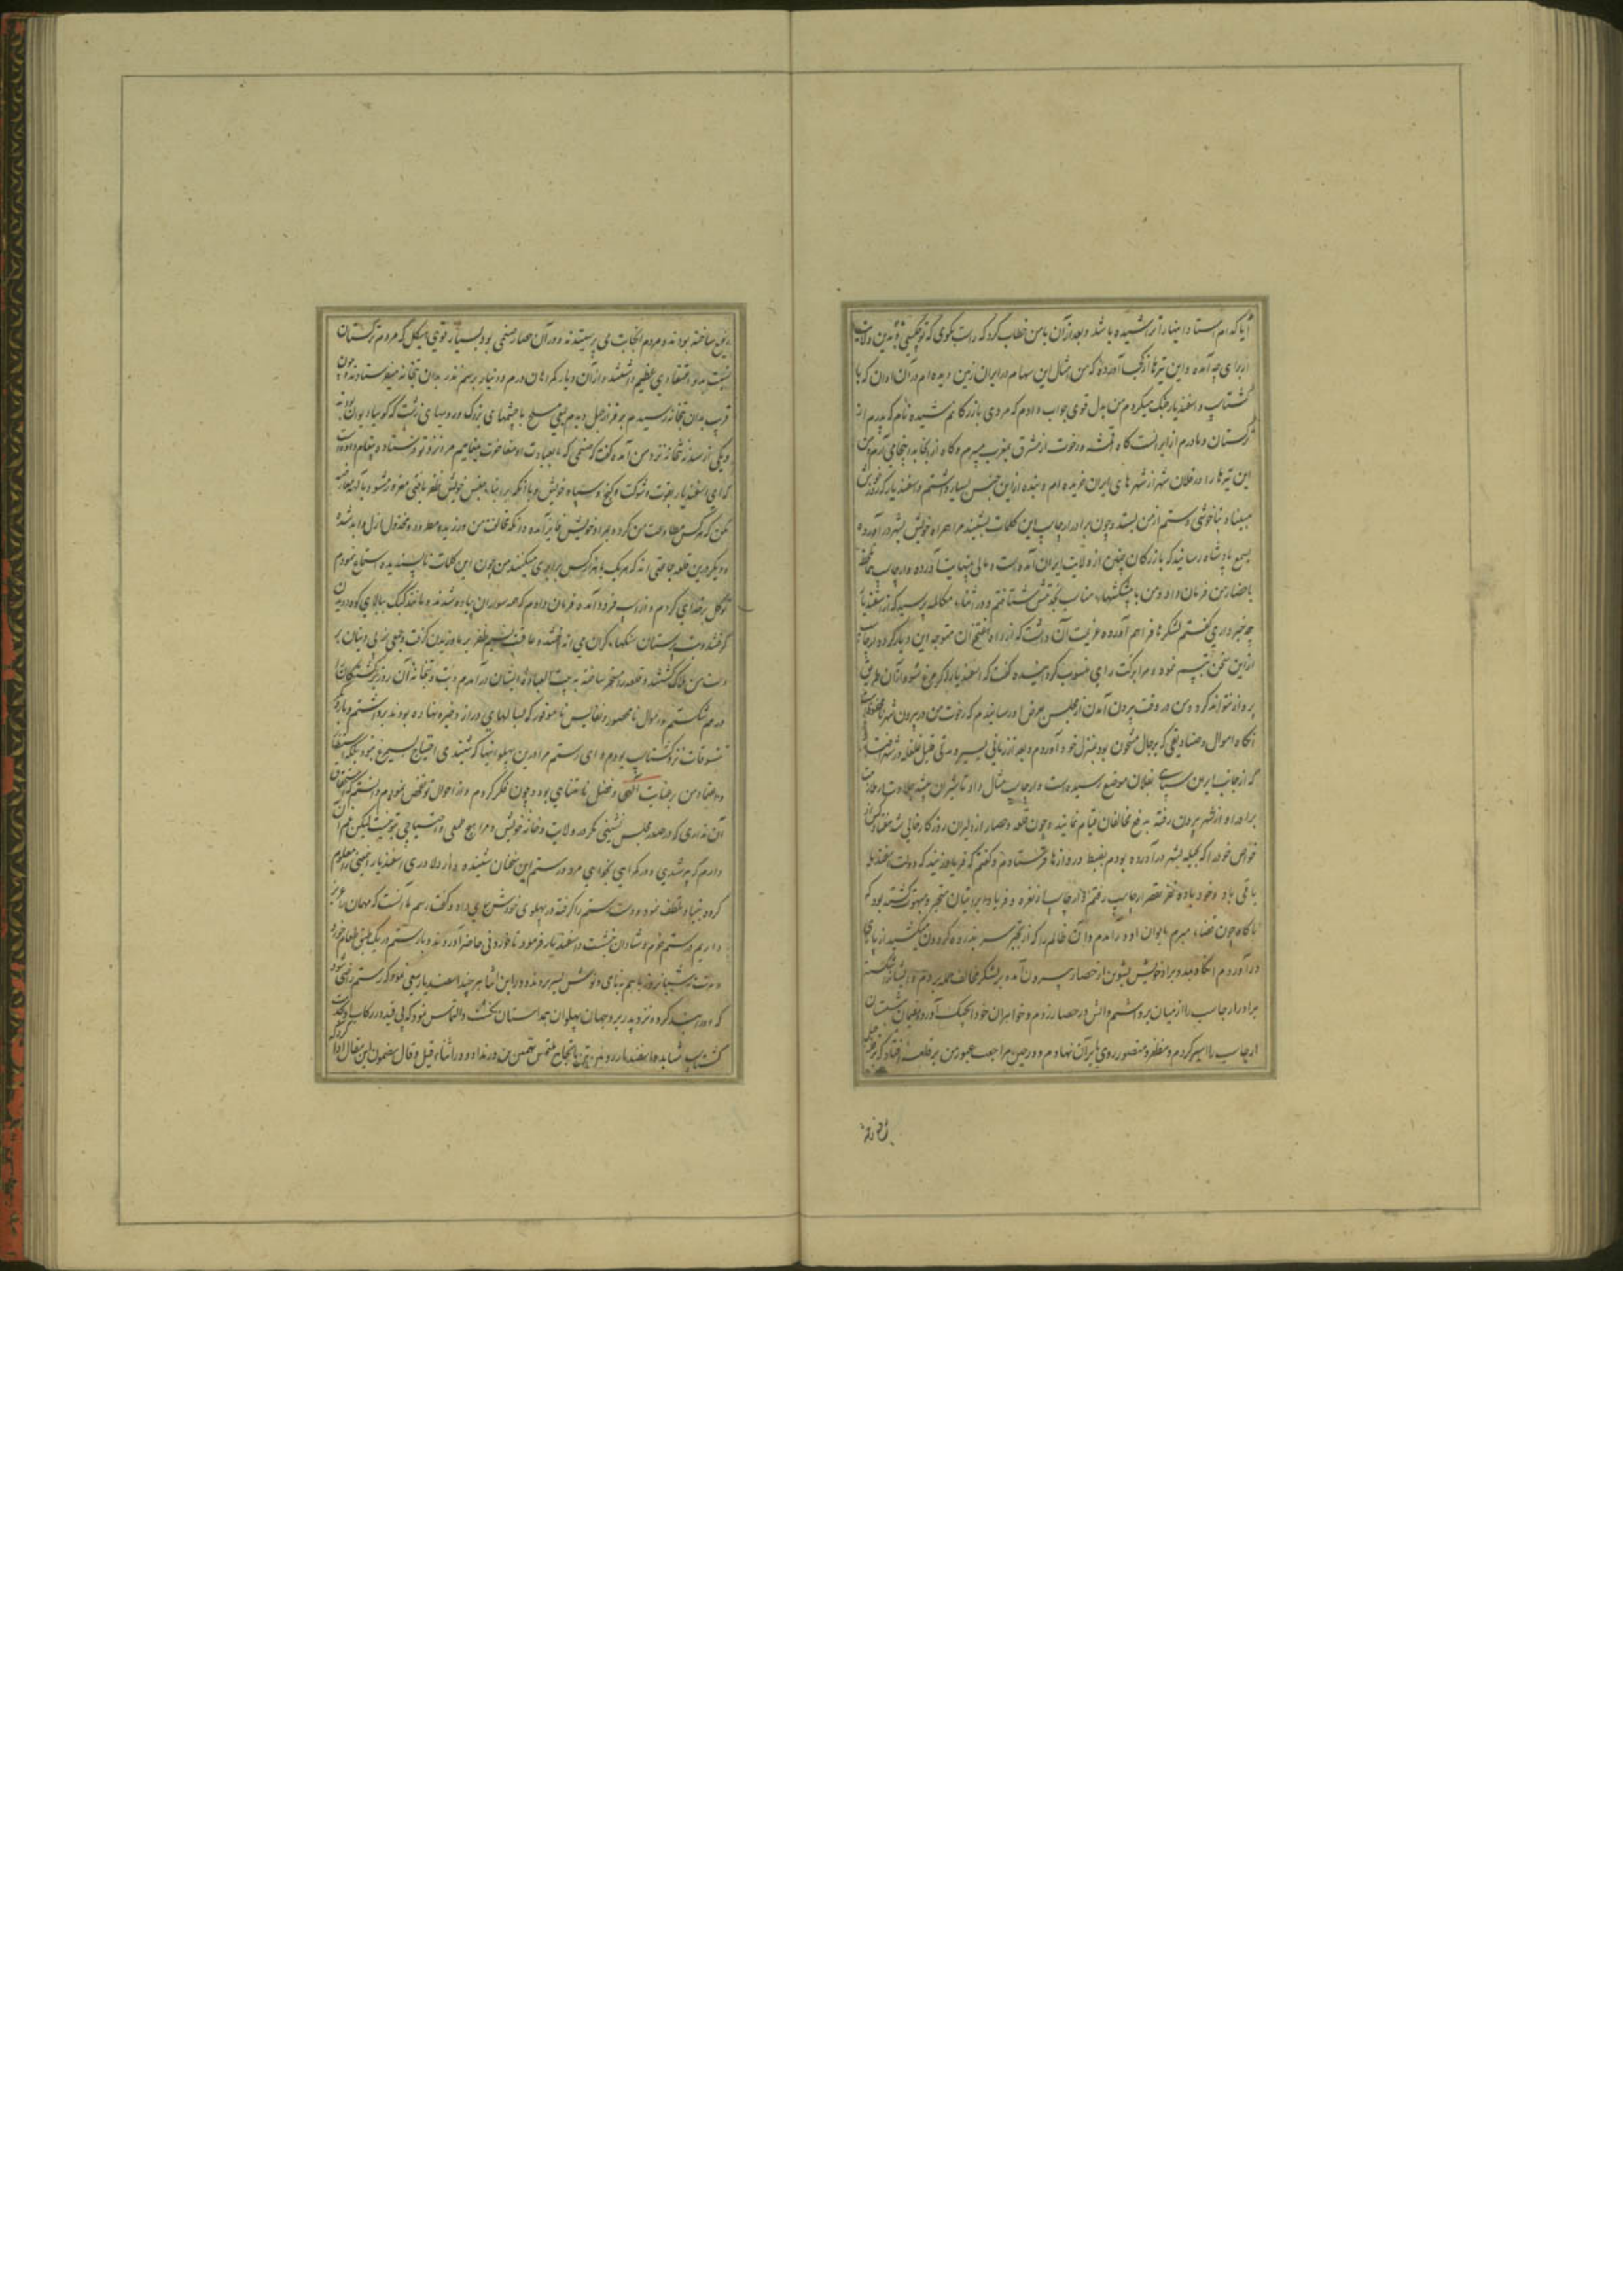 آیا کدام استاد اینها را تراشیده باشد و بعد از آن با من خطاب کرد که راست بگوی که تو چه کسی و بدین ولایت
از برای چه آمده و این تیرها از کجا آورده که من مثال این سهام در ایران زمین دیده ام در آن اوان که با
گشتاسپ و اسفندیار جنک میکردم من بدل قوی جواب دادم که مردی بازرگانم شیده نام که پدرم از
ترکستان و مادرم از ایرانست گاه اقمشه و رخوت از مشرق بمغرب میبرم و گاه از آنجا بدینجا می آرم و من
این تیرها را در فلان شهر از شهرهای ایران خریده ام و بنده از این جنس بسیار داشتم و اسفندیار
بناخوشی و ستم از من بستد و چون برادر ارجاسپ این کلمات بشنید مرا همراه خویش بشهر درآورده
بسمع پادشاه رسانید که بازرگان چنین از ولایت ایران آمده است و مالی بینهایت آورده و ارجاسپ
باحضار من فرمان داد و من با پیشکشهاء مناسب بخدمتش شتافتم و در اثناء مکالمه پرسید که از اسفندیار
چه خبر داری گفتم لشکرها فراهم آورده عزیمت آن داشت که از راه هفتخوان متوجه این دیار گردد ارجاسپ
از این سخن تبسم نمود و مرا برکت رای منسوب گردانیده گفت که اسفندیار مگر مرغ شود و از آن طریق
پرواز تواند کرد و من در وقت بیرون آمدن از مجلس بعرض او رسانیدم که رخوت من در بیرون شهر
آنگاه اموال و صنادیقی که برجال مشحون بود بمنزل خود آوردم و بعد از زمانی یسیر و مدتی قلیل غلغله در شهر افتاد
که از جانب ایران سپاهی بفلان موضع رسیده است و ارجاسپ مثال داد تا شیران بیشه جلادت
برادر او از شهر بیرون رفته به دفع مخالفان قیام نمایند و چون قلعه و حصار از دلیران روزگار خالی شد
خواص خود را که بحیله بشهر درآورده بودم بضبط دروازها فرستادم و گفتم که فریاد زنید که دولت اسفندیار
باقی باد و خود پیاده نفر بقصر ارجاسپ رفتم و ارجاسپ از نعره و فریاد ایرانیان متحیر و مبهوت گشته بود که
ناگاه چون قضاء مبرم بایوان او درآمدم و آن ظالم را که از تجبر سر بذروه گردون میکشید از پای
درآوردم آنگاه بمدد برادر خویش پشوتن از حصار بیرون آمده بر لشکر مخالف حمله بردم و ایشان را شکسته
برادر ارجاسپ را از میان برداشتم و آتش در حصار زدم و خواهران خود را بچنگ آورده
ارجاسپ را اسیر کردم و مظفر و منصور روی بایران نهادم و در حین مراجعت عبور من بر قلعه افتاد که بر قله
ساخته بودند و مردم آنجا بت می پرستیدند و در آن حصار صنمی بود بسیار قوی هیکل که مردم ترکستان
نسبت بدو اعتقادی عظیم داشتند و از آن دیار گمراهان درم و دینار برسم نذر بدان بتخانه میفرستادند و چون
قریب بدان بتخانه رسیدم بر فراز جبل دیدم جمعی مسلح با چشمهای بزرک و رویهای زشت که گویا دیوان بودند
و یکی از سدنه بتخانه نزد من آمده گفت که صنمی که ما بعبادت او مفاخرت مینماییم مرا نزد تو فرستاد و پیغام داده
که ای اسفندیار بقوت و شوکت و گنج و سپاه خویش و با آنکه بر ابناء جنس خویش ظفر یافتی مغرور مشو و با آلهه معارضه
مکن که هر کس مطاوعت من کرده بمراد خویش فایز آمده و آنکه مخالفت من ورزیده مطرود و مخذول ازل و ابد شده
و دیگر درین قلعه جماعتی اند که هر یک با هزار کس برابری میکنند من چون این کلمات ناپسندیده استماع نمودم
توکل بر خدای کردم و از اسپ فرود آمده فرمان دادم که همه سواران پیاده شدند و ماخذ کتک ببالای کوه دویدن
گرفتند و بت پرستان سنگهاء گران می انداختند و عاقبت نسیم ظفر بر ما وزیدن گرفت و جمعی بی دینان بر
دست من هلاک گشتند و قلعه را مسخر ساخته به بیت العباده ایشان درآمدم و بت و بتخانه آن
درهم شکستم و اموال نامحصور و نفایس نامقصور که در سالهای دراز ذخیره نهاده بودند برداشتم و با دیگر
تنسوقات نزد گشتاسپ بردم و ای رستم مرا در این پهلوانیها که شنیدی احتیاج بسیمرغ نبود بلکه استظهار
و اعتماد من بر عنایت الهی و فضل نامتناهی بود و چون فکر کردم و از احوال تو تفحص نمودم دانستم که استحقاق
آن نداری که در صدر مجلس نشینی مگر در ولایت و خانه خویش و مرا هیچ طمعی و احتیاجی بتو نیست لیکن غم آن
دارم که پیر شدی و در گمراهی بخواهی مرد و رستم این سخنان شنیده و از دلاوری اسفندیار معلوم
کرده بنیاد تلطف نمود و دست رستم را گرفته در پهلوی خودش جای داد و گفت رسم ما آنست که مهمان را عزیز
داریم و رستم خرم و شادان بنشست و اسفندیار فرمود تا خوردنی حاضر آوردند و با رستم در یک طبق طعام خورد
و مدت سه شبانروز با هم بنای و نوش بسر بردند و در این اثنا هر چند اسفندیار سعی نمود که رستم راضی شود
که او را بند کرده نزد پدر برد جهان پهلوان همداستان نگشت و التماس نمود که بی قید در رکاب او بخدمت
گشتاسپ شتابد و اسفندیار روئین تن بانجاح ملتمس تهمتن تن درنداد و در اثناء قیل و قال مضمون این مقال ادا کرد که